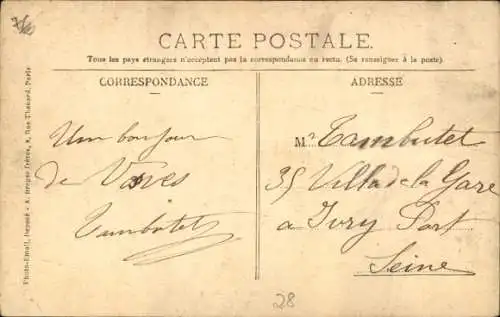 CARTE POSTALE
Tous les pays étrangers n'acceptent pas la correspondance au recto. (Se renseigner à la poste).
CORRESPONDANCE
Un bonjour
de Vives
Tambutet
ADRESSE
Mr Tambutet
35 Villa de la Gare
a Ivry Port
Seine
28